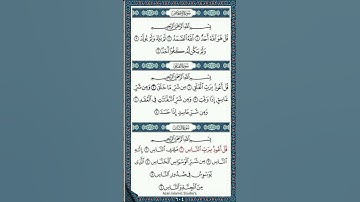 سورة الإخلاص
بِسْمِ اللَّهِ الرَّحْمَٰنِ الرَّحِيمِ
قُلْ هُوَ اللَّهُ أَحَدٌ ١ اللَّهُ الصَّمَدُ ٢ لَمْ يَلِدْ وَلَمْ يُولَدْ ٣
وَلَمْ يَكُن لَّهُ كُفُوًا أَحَدٌ ٤
سورة الفلق
بِسْمِ اللَّهِ الرَّحْمَٰنِ الرَّحِيمِ
قُلْ أَعُوذُ بِرَبِّ الْفَلَقِ ١ مِن شَرِّ مَا خَلَقَ ٢ وَمِن شَرِّ
غَاسِقٍ إِذَا وَقَبَ ٣ وَمِن شَرِّ النَّفَّاثَاتِ فِي الْعُقَدِ ٤
وَمِن شَرِّ حَاسِدٍ إِذَا حَسَدَ ٥
سورة الناس
بِسْمِ اللَّهِ الرَّحْمَٰنِ الرَّحِيمِ
قُلْ أَعُوذُ بِرَبِّ النَّاسِ ١ مَلِكِ النَّاسِ ٢ إِلَٰهِ
النَّاسِ ٣ مِن شَرِّ الْوَسْوَاسِ الْخَنَّاسِ ٤ الَّذِي
يُوَسْوِسُ فِي صُدُورِ النَّاسِ ٥
مِنَ الْجِنَّةِ وَالنَّاسِ ٦
٦٠٤